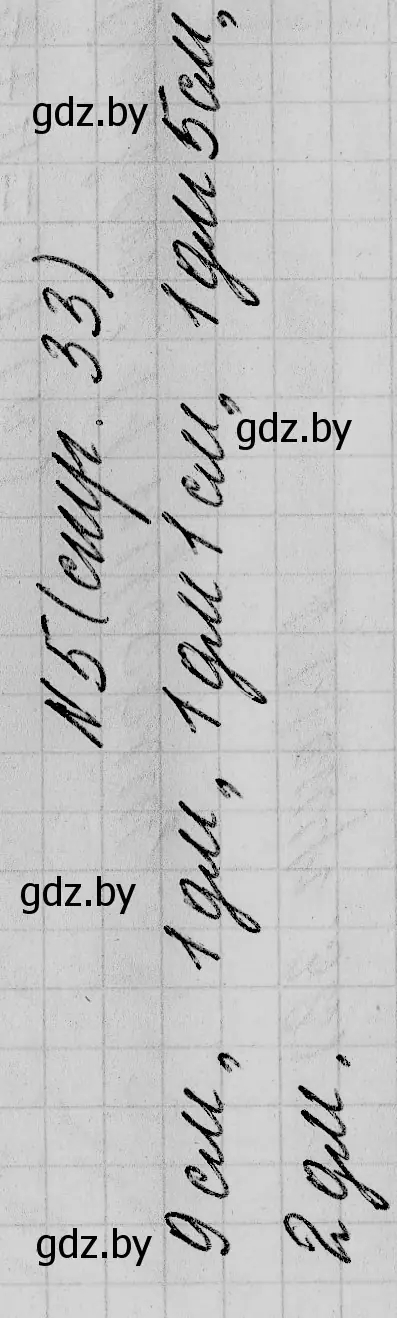 N5 (стр. 33)
9 см, 1 дм, 1 дм 1 см, 1 дм 5 см,
2 дм.
gdz.by
gdz.by
gdz.by
gdz.by